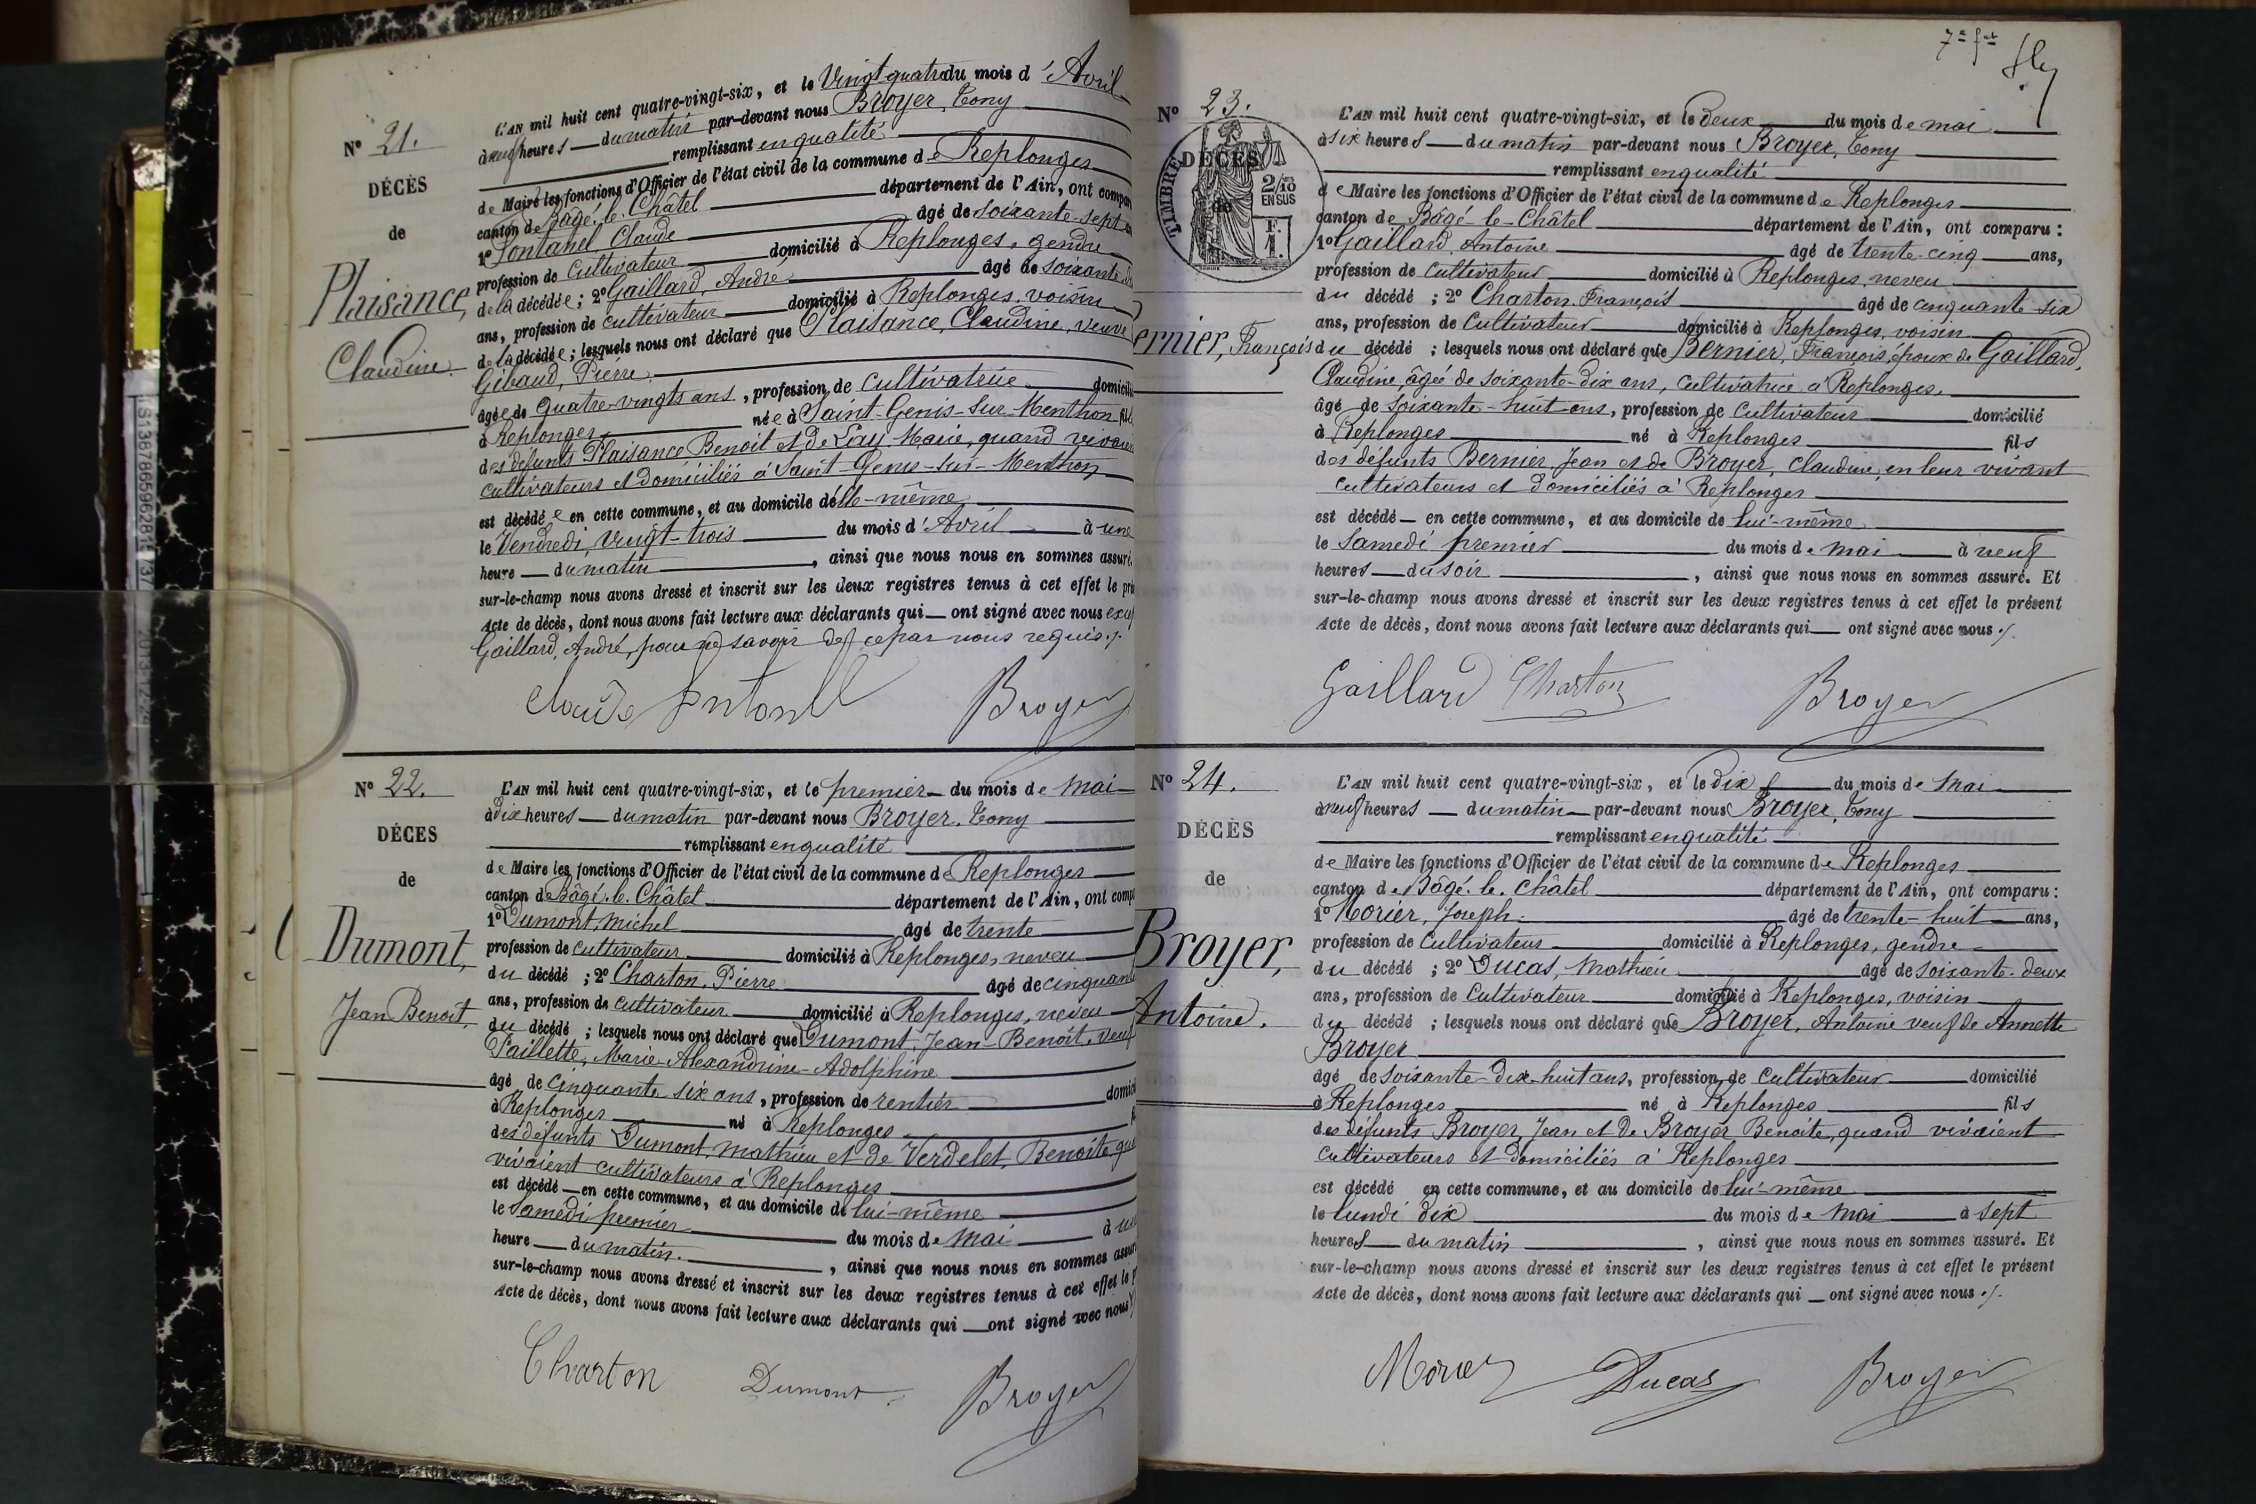 N° 21.
DÉCÈS
de
Plaisance,
Claudine.
L'AN mil huit cent quatre-vingt-six, et le Vingt quatre du mois d'Avril
à neuf heures du matin par-devant nous Broyer, Tony
remplissant en qualité
de Maire les fonctions d'Officier de l'état civil de la commune de Replonges
canton de Bâgé-le-Châtel département de l'Ain, ont compar
1° Fontanel Claude âgé de soixante-sept an
profession de cultivateur domicilié à Replonges, gendre
de la décédée ; 2° Gaillard, André âgé de soixante
ans, profession de cultivateur domicilié à Replonges, voisin
de la décédée ; lesquels nous ont déclaré que Plaisance, Claudine, veuve
Gibaud, Pierre.
âgée de quatre-vingts ans, profession de cultivatrice domicilié
à Replonges née à Saint-Genis-sur-Menthon fille
des défunts Plaisance Benoit et de Lay Marie, quand vivaient
cultivateurs et domiciliés à Saint-Genis-sur-Menthon
est décédée en cette commune, et au domicile d'elle-même
le Vendredi, vingt-trois du mois d'Avril à une
heure du matin, ainsi que nous nous en sommes assuré.
sur-le-champ nous avons dressé et inscrit sur les deux registres tenus à cet effet le pré
Acte de décès, dont nous avons fait lecture aux déclarants qui ont signé avec nous excep
Gaillard, André, pour ne savoir de ce par nous requis ./.
Claude Fontanel Broyer
N° 22.
DÉCÈS
de
Dumont,
Jean Benoit,
L'AN mil huit cent quatre-vingt-six, et le premier du mois de Mai
à dix heures du matin par-devant nous Broyer, Tony
remplissant en qualité
de Maire les fonctions d'Officier de l'état civil de la commune de Replonges
canton de Bâgé-le-Châtel département de l'Ain, ont comp
1° Dumont, Michel âgé de trente
profession de cultivateur domicilié à Replonges, neveu
du décédé ; 2° Charton, Pierre âgé de cinquante
ans, profession de cultivateur domicilié à Replonges, neveu
du décédé ; lesquels nous ont déclaré que Dumont, Jean-Benoit, veuf
Paillette, Marie-Alexandrine-Adolphine
âgé de cinquante six ans, profession de rentier domici
à Replonges né à Replonges fi
des défunts Dumont, Mathieu et de Verdelet, Benoite qu
vivaient cultivateurs à Replonges
est décédé en cette commune, et au domicile de lui-même
le Samedi premier du mois de Mai à une
heure du matin, ainsi que nous nous en sommes assuré
sur-le-champ nous avons dressé et inscrit sur les deux registres tenus à cet effet le p
Acte de décès, dont nous avons fait lecture aux déclarants qui ont signé avec nous ./.
Charton Dumont Broyer
7e ft
N° 23.
TIMBRE
2/10 EN SUS
F. 1.
DÉCÈS
de
ernier, François
L'AN mil huit cent quatre-vingt-six, et le Deux du mois de mai
à six heures du matin par-devant nous Broyer, Tony
remplissant en qualité
de Maire les fonctions d'Officier de l'état civil de la commune de Replonges
canton de Bâgé-le-Châtel département de l'Ain, ont comparu :
1° Gaillard, Antoine âgé de trente cinq ans,
profession de cultivateur domicilié à Replonges neveu
du décédé ; 2° Charton François âgé de cinquante-six
ans, profession de cultivateur domicilié à Replonges, voisin
du décédé ; lesquels nous ont déclaré que Bernier, François, époux de Gaillard,
Claudine, âgée de soixante-dix ans, cultivatrice à Replonges,
âgé de soixante-huit ans, profession de cultivateur domicilié
à Replonges né à Replonges fils
des défunts Bernier Jean et de Broyer, Claudine, en leur vivant
cultivateurs et domiciliés à Replonges
est décédé en cette commune, et au domicile de lui-même
le Samedi premier du mois de mai à neuf
heures du soir, ainsi que nous nous en sommes assuré. Et
sur-le-champ nous avons dressé et inscrit sur les deux registres tenus à cet effet le présent
Acte de décès, dont nous avons fait lecture aux déclarants qui ont signé avec nous ./.
Gaillard Charton Broyer
N° 24.
DÉCÈS
de
Broyer,
Antoine.
L'AN mil huit cent quatre-vingt-six, et le Dix du mois de Mai
à neuf heures du matin par-devant nous Broyer, Tony
remplissant en qualité
de Maire les fonctions d'Officier de l'état civil de la commune de Replonges
canton de Bâgé-le-Châtel département de l'Ain, ont comparu :
1° Morier, Joseph. âgé de trente-huit ans,
profession de cultivateur domicilié à Replonges, gendre
du décédé ; 2° Ducas, Mathieu âgé de soixante-deux
ans, profession de cultivateur domicilié à Replonges, voisin
du décédé ; lesquels nous ont déclaré que Broyer, Antoine veuf de Annette
Broyer
âgé de soixante-dix-huit ans, profession de cultivateur domicilié
à Replonges né à Replonges fils
des défunts Broyer, Jean et de Broyer Benoite, quand vivaient
cultivateurs et domiciliés à Replonges
est décédé en cette commune, et au domicile de lui-même
le lundi dix du mois de Mai à sept
heures du matin, ainsi que nous nous en sommes assuré. Et
sur-le-champ nous avons dressé et inscrit sur les deux registres tenus à cet effet le présent
Acte de décès, dont nous avons fait lecture aux déclarants qui ont signé avec nous ./.
Morier Ducas Broyer